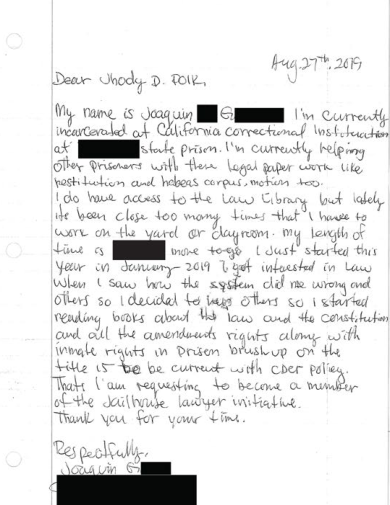 Aug. 27th, 2019
Dear Jhody D. POlk,
My name is Joaquin G I'm currently
incarcerated at California correctional Institution
at state prison. I'm currently helping
other prisoners with there legal paper work like
restitution and habeas corpus, motion too.
I do have access to the Law Library but lately
its been close too many times that I have to
work on the yard or dayroom. my length of
time is more to go I Just started this
year in January 2019 I got intrested in Law
when I saw how the system did me wrong and
others so I decided to others so I started
reading books about the law and the constitution
and all the amendments rights along with
inmate rights in prison brush up on the
title 15 to be current with CDCR policy.
Thats I'am requesting to become a member
of the Jailhouse lawyer initiative.
Thank you for your time.
Respectfully,
Joaquin G